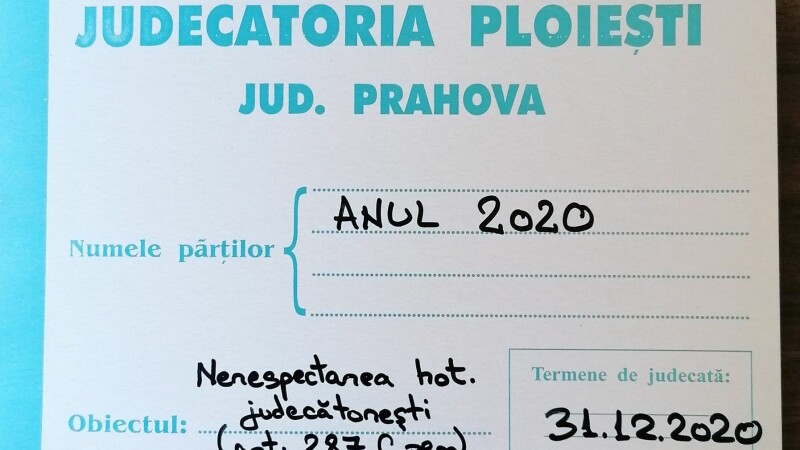 JUDECATORIA PLOIEȘTI
JUD. PRAHOVA
Numele părților
ANUL 2020
Nerespectarea hot.
judecătorești
Obiectul:
287 C.
Termene de judecată:
31.12.2020